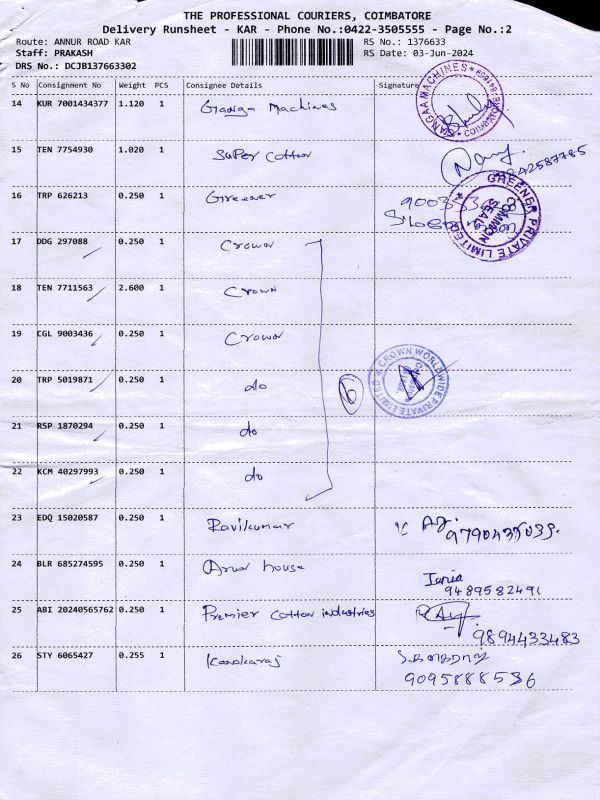 THE PROFESSIONAL COURIERS, COIMBATORE
Delivery Runsheet - KAR - Phone No.:0422-3505555 - Page No.:2
Route: ANNUR ROAD KAR RS No.: 1376633
Staff: PRAKASH RS Date: 03-Jun-2024
DRS No.: DCJB137663302
S No Consignment No Weight PCS Consignee Details Signature
14 KUR 7001434377 1.120 1 Ganga Machines
COIMBATORE
15 TEN 7754930 1.020 1 Super Cotton
16 TRP 626213 0.250 1 Greener
GREENER PRIVATE LIMITED
COMMON SEAL
17 DDG 297088 0.250 1 Crown
18 TEN 7711563 2.600 1 Crown
19 CGL 9003436 0.250 1 Crown
20 TRP 5019871 0.250 1 do
6
CROWN WORLDWIDE PRIVATE LIMITED
21 RSP 1870294 0.250 1 do
22 KCM 40297993 0.250 1 do
23 EDQ 15020587 0.250 1 Ravikumar
24 BLR 685274595 0.250 1 house
9489582491
25 ABI 20240565762 0.250 1 Premier Cotton industries
9894433483
26 STY 6065427 0.255 1 Kanakaraj
9095888536